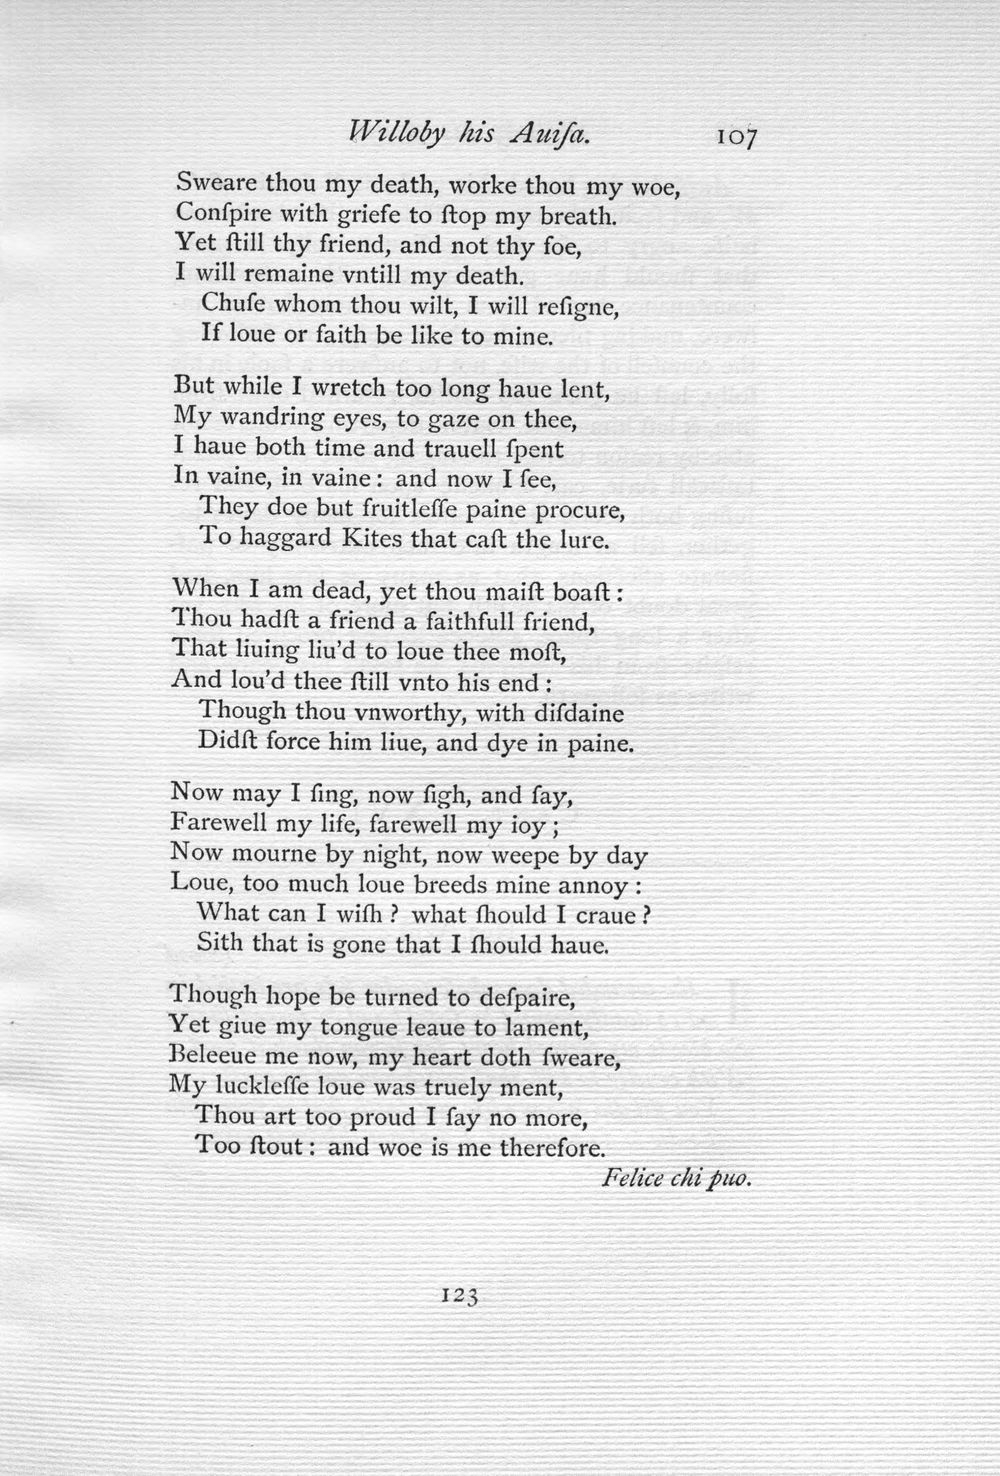 Willoby his Auiſa. 107
Sweare thou my death, worke thou my woe,
Conſpire with griefe to ſtop my breath.
Yet ſtill thy friend, and not thy foe,
I will remaine vntill my death.
Chuſe whom thou wilt, I will reſigne,
If loue or faith be like to mine.
But while I wretch too long haue lent,
My wandring eyes, to gaze on thee,
I haue both time and trauell ſpent
In vaine, in vaine : and now I ſee,
They doe but fruitleſſe paine procure,
To haggard Kites that caſt the lure.
When I am dead, yet thou maiſt boaſt :
Thou hadſt a friend a faithfull friend,
That liuing liu’d to loue thee moſt,
And lou’d thee ſtill vnto his end :
Though thou vnworthy, with diſdaine
Didſt force him liue, and dye in paine.
Now may I ſing, now ſigh, and ſay,
Farewell my life, farewell my ioy ;
Now mourne by night, now weepe by day
Loue, too much loue breeds mine annoy :
What can I wiſh ? what ſhould I craue ?
Sith that is gone that I ſhould haue.
Though hope be turned to deſpaire,
Yet giue my tongue leaue to lament,
Beleeue me now, my heart doth ſweare,
My luckleſſe loue was truely ment,
Thou art too proud I ſay no more,
Too ſtout : and woe is me therefore.
Felice chi puo.
123